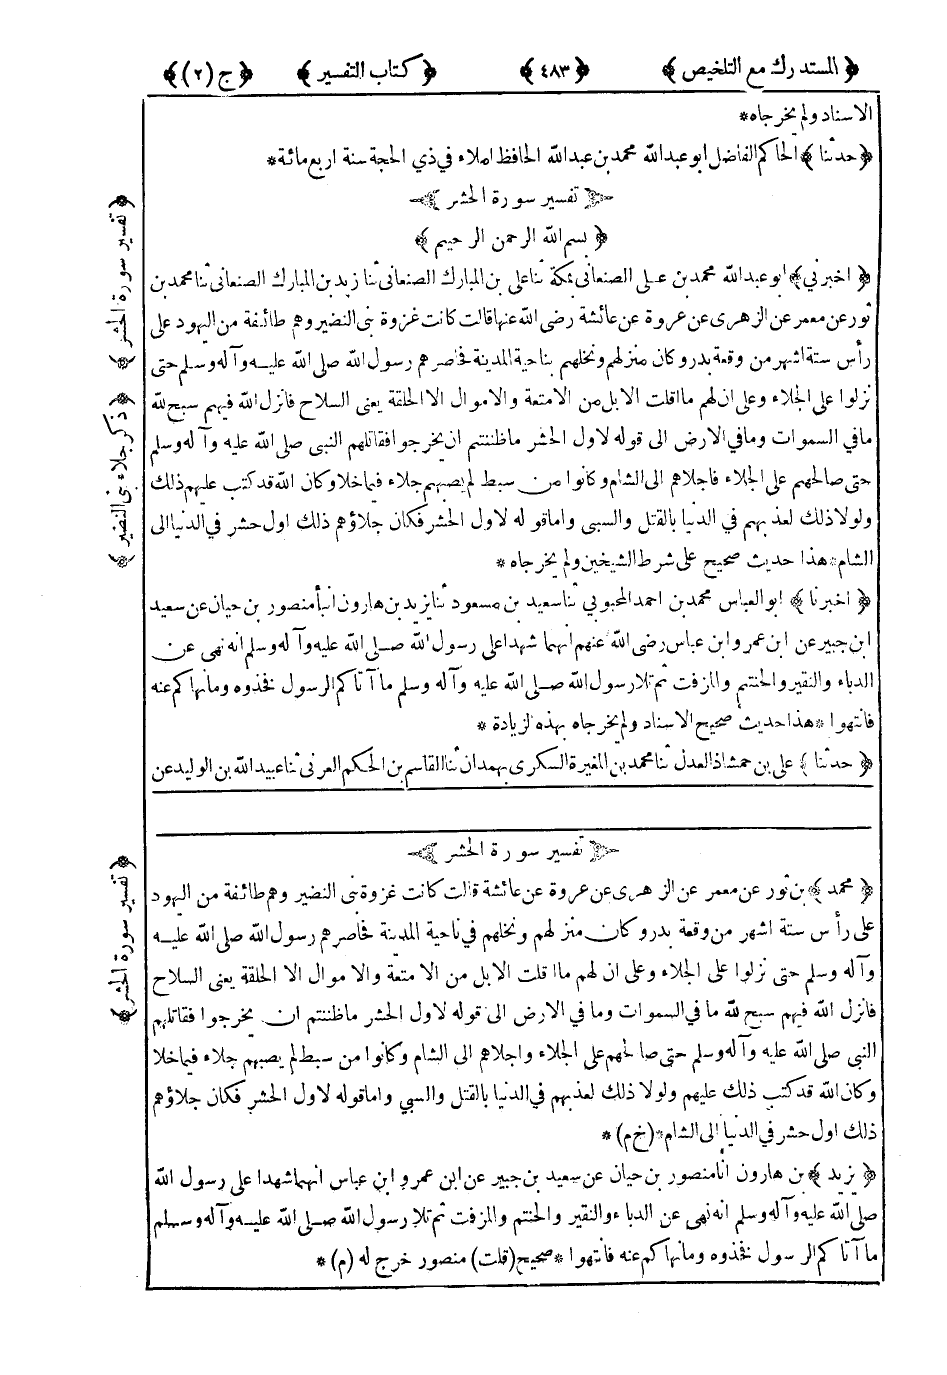 ﴿ المستدرك مع التلخيص ﴾ ﴿ ٤٨٣ ﴾ ﴿ كتاب التفسير ﴾ ﴿ ج (٢) ﴾
الاسناد ولم يخرجاه *
﴿ حدثنا ﴾ الحاكم الفاضل ابو عبد الله محمد بن عبد الله الحافظ املاء في ذي الحجة سنة اربع مائة *
تفسير سورة الحشر
﴿ بسم الله الرحمن الرحيم ﴾
﴿ اخبرني ﴾ ابو عبد الله محمد بن علي الصنعاني بمكة ثنا علي بن المبارك الصنعاني ثنا زيد بن المبارك الصنعاني ثنا محمد بن
ثور عن معمر عن الزهري عن عروة عن عائشة رضى الله عنها قالت كانت غزوة بني النضير وهم طائفة من اليهود على
رأس ستة اشهر من وقعة بدر وكان منزلهم ونخلهم بناحية المدينة فحاصرهم رسول الله صلى الله عليه وآله وسلم حتى
نزلوا على الجلاء وعلى ان لهم ما اقلت الابل من الامتعة والاموال الا الحلقة يعنى السلاح فانزل الله فيهم سبح لله
ما في السموات وما في الارض الى قوله لاول الحشر ما ظننتم ان يخرجوا فقاتلهم النبى صلى الله عليه وآله وسلم
حتى صالحهم على الجلاء فاجلاهم الى الشام وكانوا من سبط لم يصبهم جلاء فيما خلا وكان الله قد كتب عليهم ذلك
ولولا ذلك لعذبهم في الدنيا بالقتل والسبى واما قوله لاول الحشر فكان جلاؤهم ذلك اول حشر في الدنيا الى
الشام * هذا حديث صحيح على شرط الشيخين ولم يخرجاه *
﴿ اخبرنا ﴾ ابو العباس محمد بن احمد المحبوبي ثنا سعيد بن مسعود ثنا يزيد بن هارون انبأ منصور بن حيان عن سعيد
ابن جبير عن ابن عمر وابن عباس رضى الله عنهم انهما شهدا على رسول الله صلى الله عليه وآله وسلم انه نهى عن
الدباء والنقير والحنتم والمزفت ثم تلا رسول الله صلى الله عليه وآله وسلم ما آتاكم الرسول فخذوه وما نهاكم عنه
فانتهوا * هذا حديث صحيح الاسناد ولم يخرجاه بهذه الزيادة *
﴿ حدثنا ﴾ على بن حمشاذ العدل ثنا محمد بن المغيرة السكرى بهمدان ثنا القاسم بن الحكم العرنى ثنا عبيد الله بن الوليد عن
تفسير سورة الحشر
﴿ محمد ﴾ بن ثور عن معمر عن الزهرى عن عروة عن عائشة قالت كانت غزوة بنى النضير وهم طائفة من اليهود
على رأس ستة اشهر من وقعة بدر وكان منزلهم ونخلهم في ناحية المدينة فحاصرهم رسول الله صلى الله عليه
وآله وسلم حتى نزلوا على الجلاء وعلى ان لهم ما اقلت الابل من الامتعة والاموال الا الحلقة يعنى السلاح
فانزل الله فيهم سبح لله ما في السموات وما في الارض الى قوله لاول الحشر ما ظننتم ان يخرجوا فقاتلهم
النبى صلى الله عليه وآله وسلم حتى صالحهم على الجلاء واجلاهم الى الشام وكانوا من سبط لم يصبهم جلاء فيما خلا
وكان الله قد كتب ذلك عليهم ولولا ذلك لعذبهم في الدنيا بالقتل والسبي واما قوله لاول الحشر فكان جلاؤهم
ذلك اول حشر في الدنيا الى الشام * (خ م) *
﴿ يزيد ﴾ بن هارون انا منصور بن حيان عن سعيد بن جبير عن ابن عمر وابن عباس انهما شهدا على رسول الله
صلى الله عليه وآله وسلم انه نهى عن الدباء والنقير والحنتم والمزفت ثم تلا رسول الله صلى الله عليه وآله وسلم
ما آتاكم الرسول فخذوه وما نهاكم عنه فانتهوا * صحيح (قلت) منصور خرج له (م) *
﴿ تفسير سورة الحشر ﴾
﴿ ذكر جلاء بنى النضير ﴾
﴿ تفسير سورة الحشر ﴾